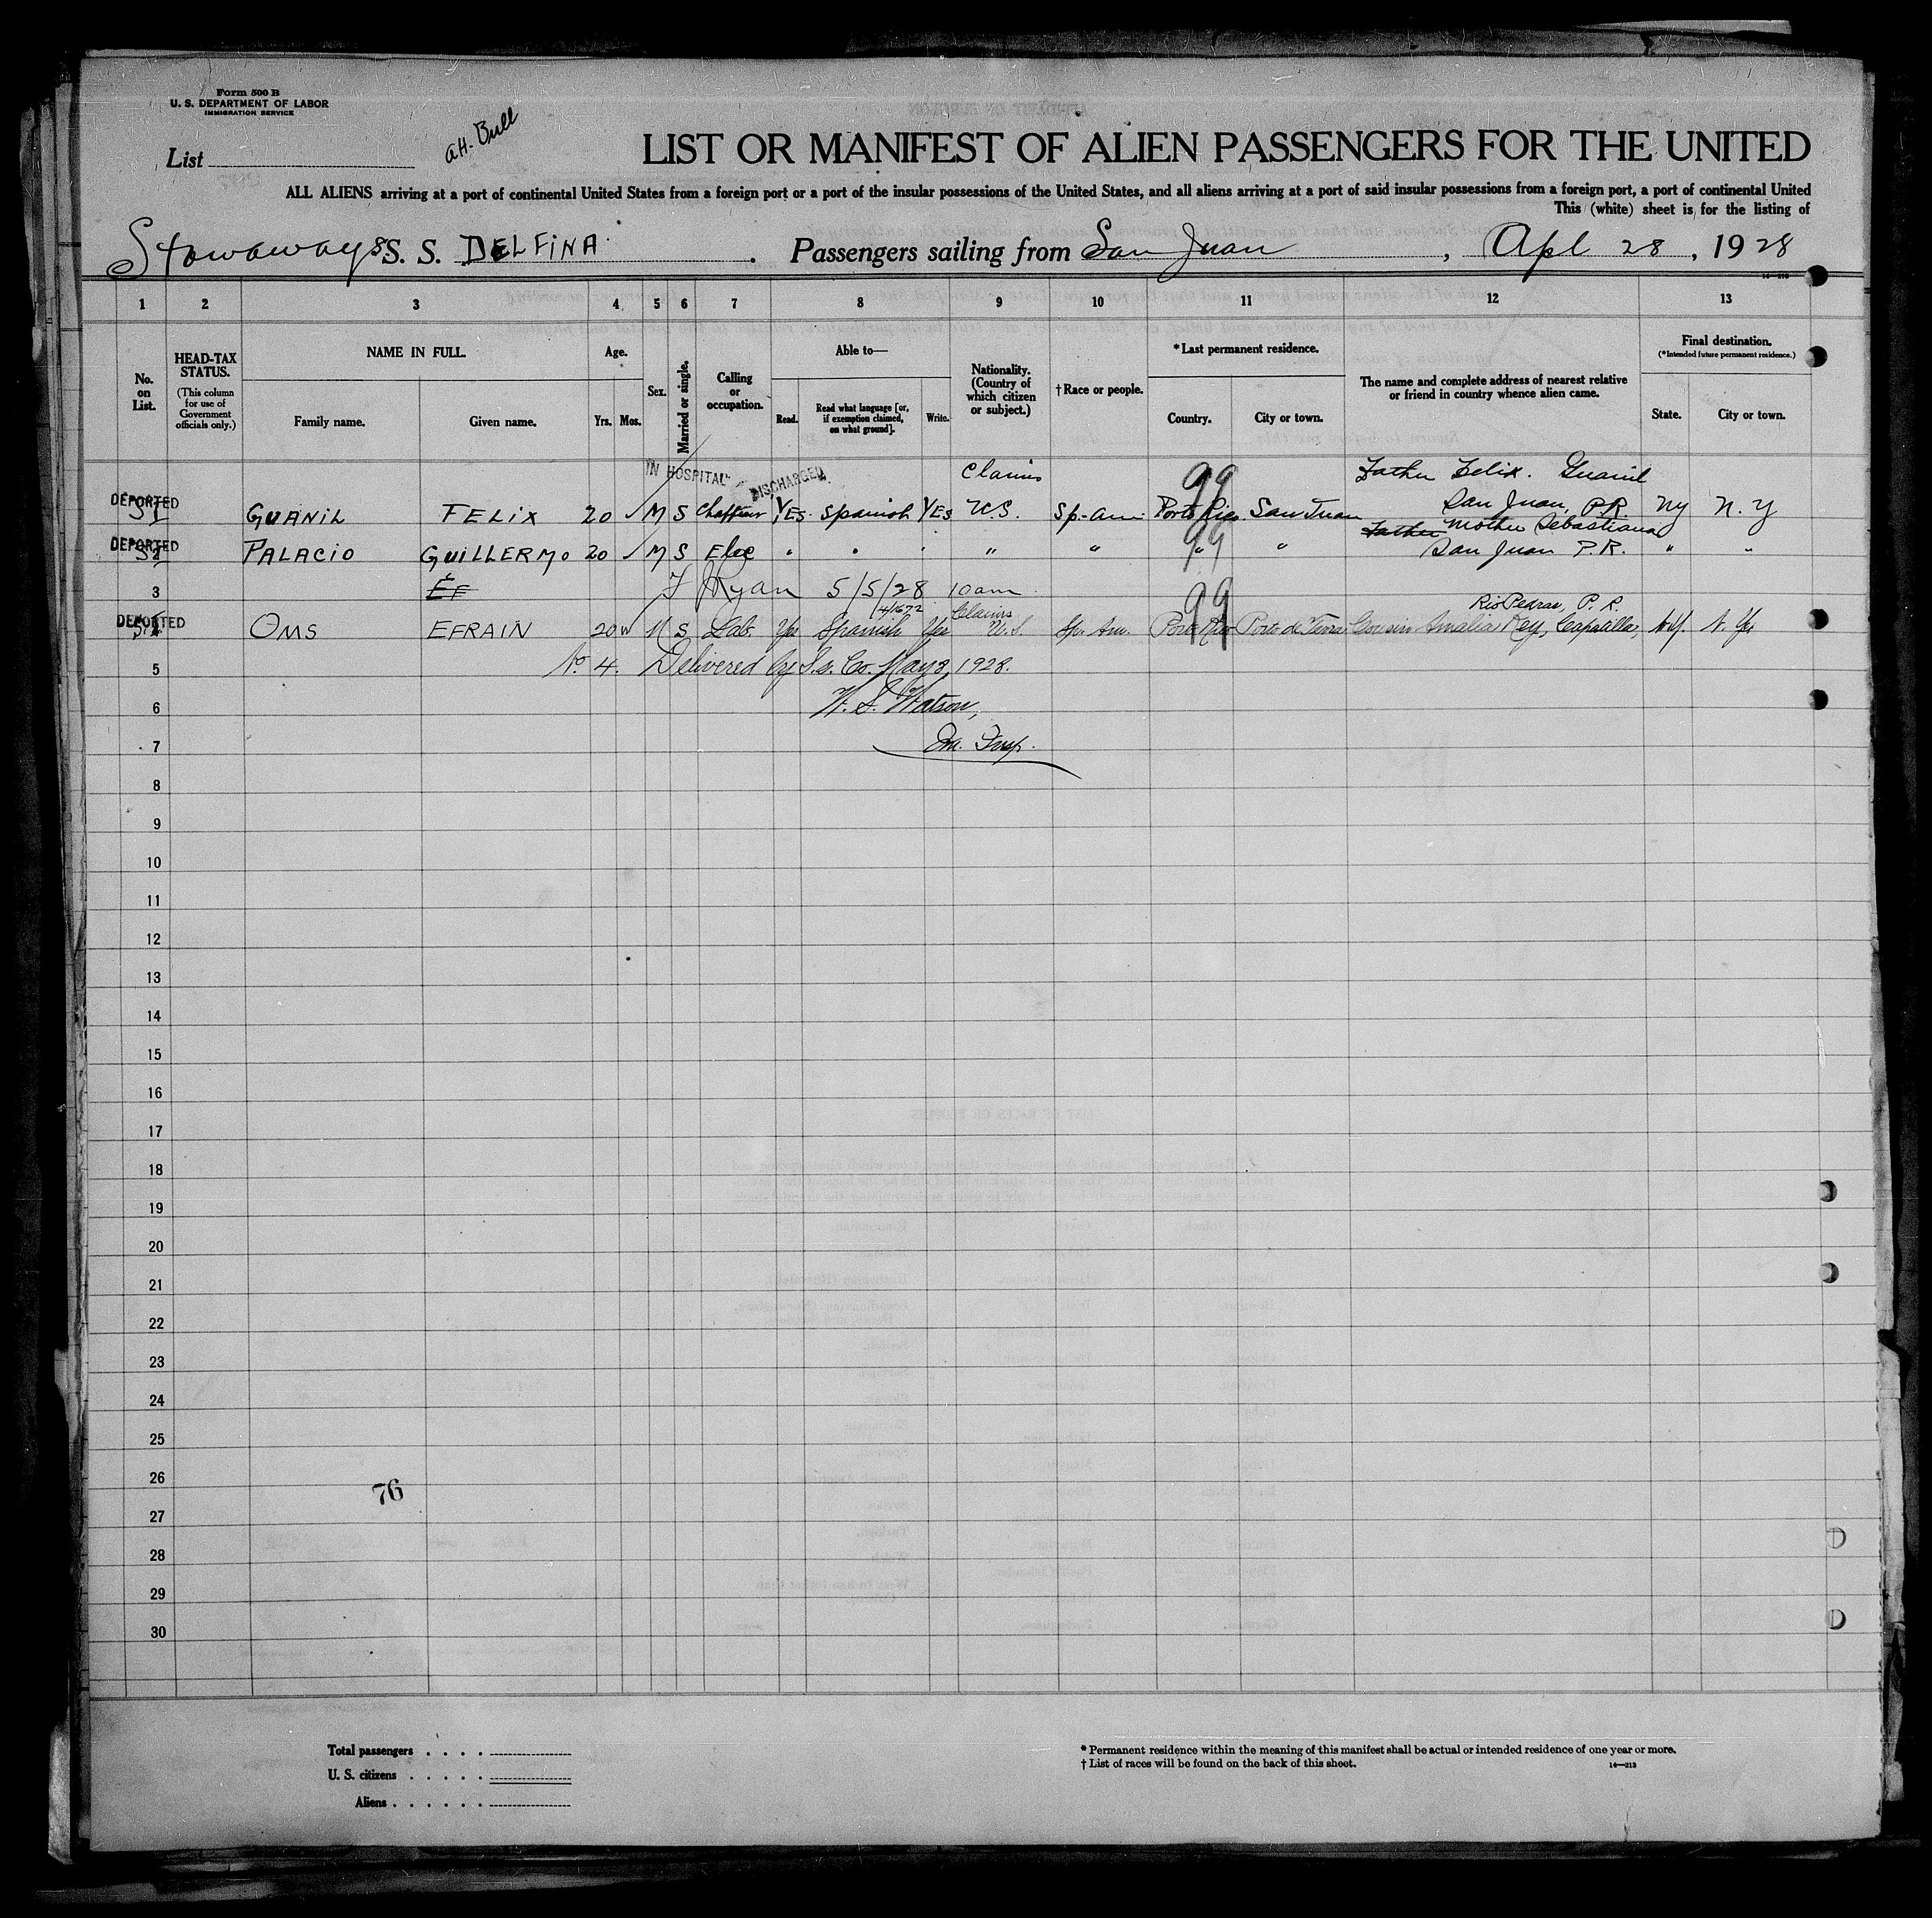 Form 500 B
U. S. DEPARTMENT OF LABOR
IMMIGRATION SERVICE
List
A.H. Bull
LIST OR MANIFEST OF ALIEN PASSENGERS FOR THE UNITED
ALL ALIENS arriving at a port of continental United States from a foreign port or a port of the insular possessions of the United States, and all aliens arriving at a port of said insular possessions from a foreign port, a port of continental United
This (white) sheet is for the listing of
Stowaways S. S. DELFINA. Passengers sailing from San Juan, Apl 28, 1928
1 2 3 4 5 6 7 8 9 10 11 12 13
No. on List.
HEAD-TAX STATUS.
(This column for use of Government officials only.)
NAME IN FULL.
Family name. Given name.
Age.
Yrs. Mos.
Sex.
Married or single.
Calling or occupation.
Able to—
Read. Read what language [or, if exemption claimed, on what ground]. Write.
Nationality. (Country of which citizen or subject.)
† Race or people.
* Last permanent residence.
Country. City or town.
The name and complete address of nearest relative or friend in country whence alien came.
Final destination.
(* Intended future permanent residence.)
State. City or town.
IN HOSPITAL DISCHARGED Claims 99 Father Felix. Guanil
DEPORTED GUANIL FELIX 20 M S Chaffeur YES Spanish YES U.S. Sp-Am Porto Rico San Juan San Juan, P.R. NY N.Y
Father Mother Sebastiana
DEPORTED PALACIO GUILLERMO 20 M S Elec " " " " " 99 " " San Juan P.R. " "
3 EF F Ryan 5/5/28 10am
Claims 99 Rio Pedras, P. R.
DEPORTED OMS EFRAIN 20 M S Lab Yes Spanish Yes U.S Sp. Am. Porto Rico Cousin Amalia Rey, N.Y. N. Y.
5 No 4. Delivered by S.s. Co. May 8, 1928.
6 W. S. Watson,
7 Im. Insp.
8
9
10
11
12
13
14
15
16
17
18
19
20
21
22
23
24
25
26
76
27
28
29
30
Total passengers . . . .
U. S. citizens . . . . .
Aliens . . . . . .
* Permanent residence within the meaning of this manifest shall be actual or intended residence of one year or more.
† List of races will be found on the back of this sheet. 14—213